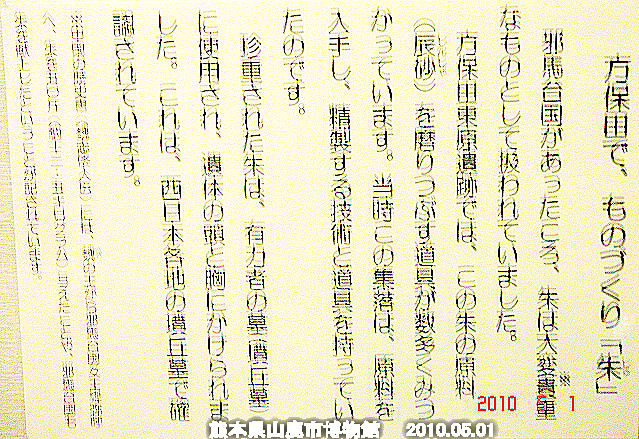 方保田で、ものづくり「朱」
邪馬台国があったころ、朱は大変貴重※
なものとして扱われていました。
方保田東原遺跡では、この朱の原料
(辰砂)を磨りつぶす道具が数多くみつ
かっています。当時この集落は、原料を
入手し、精製する技術と道具を持ってい
たのです。
珍重された朱は、有力者の墓(墳丘墓)
に使用され、遺体の頭と胸にかけられま
した。これは、西日本各地の墳丘墓で確
認されています。
※中国の歴史書(魏志倭人伝)には、魏の王から邪馬台国女王卑弥呼
へ、朱を五〇斤
朱を献上したということが記されています。
2010 5 1
熊本県山鹿市博物館 2010.05.01